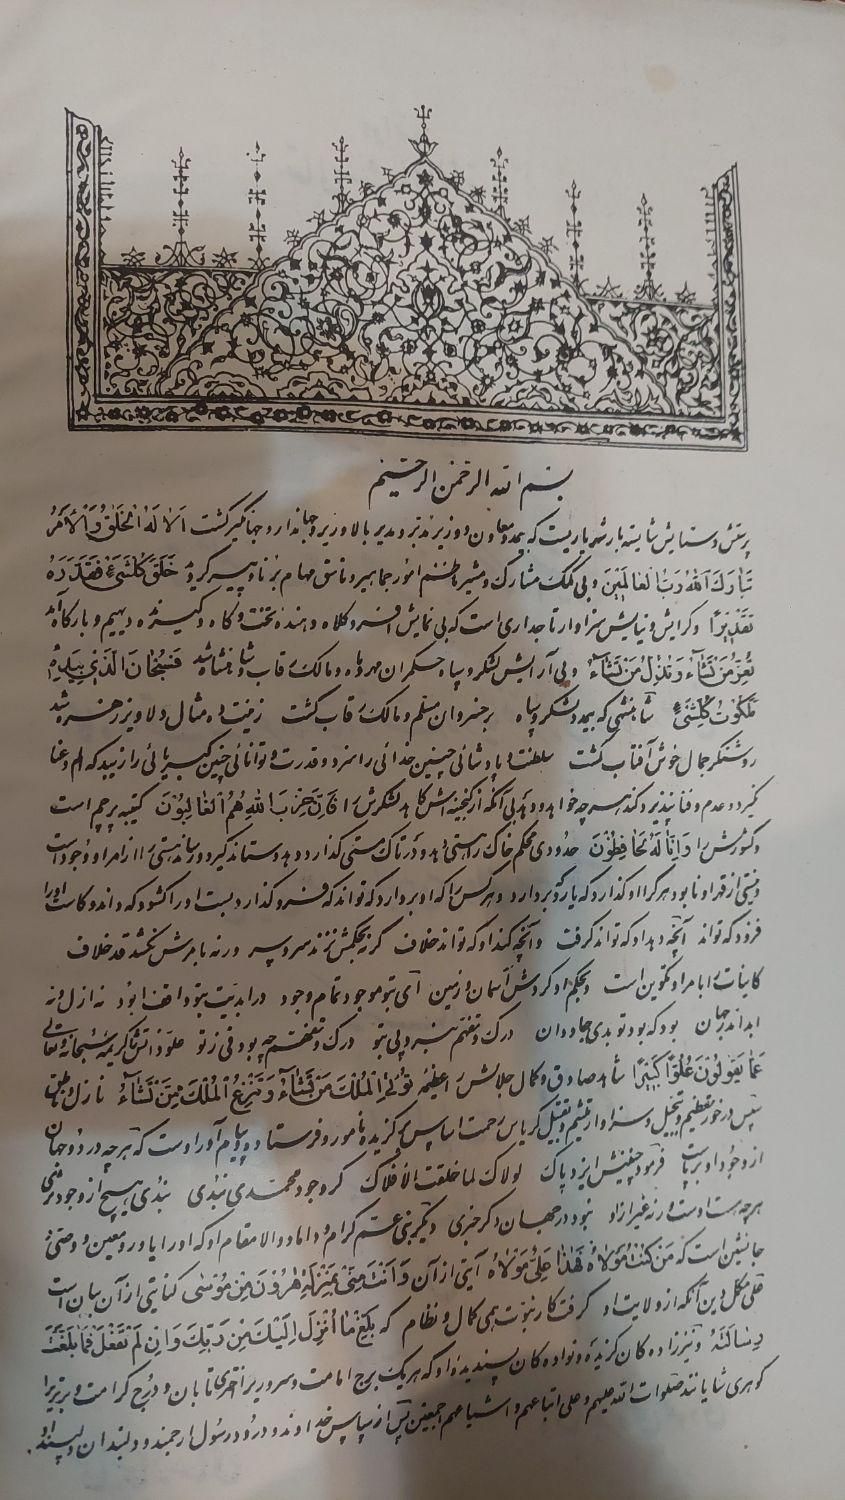 بسم الله الرحمن الرحیم
پرستش و ستایش شایسته بار شهریاریست که بیمدد معاون و وزیر مدبر و مدیر بالا و زیر و جهاندار و جهانگیر گشت اَلا لَهُ الْخَلْقُ وَالْاَمْرُ
تَبارَكَ اللهُ رَبُّ الْعالَمینَ و بی کمک مشارک و مشیر ناظم امور جماهیر و ناسق مهام برنا و پیر گردید خَلَقَ كُلَّشَیْءٍ فَقَدَّرَهُ
تَقْدیرًا و گرایش و نیایش سزاوار تاجداری است که بی نمایش افسر و کلاه دهنده تخت و گاه و دیهیم و بارگاه آمد
تُعِزُّ مَنْ تَشآءُ وَتُذِلُّ مَنْ تَشآءُ و بی آرایش لشکر و سپاه حکمران مهر و ماه و مالک رقاب شاهنشاه شد فَسُبْحانَ الَّذی بِیَدِهِ
مَلَكُوتُ كُلِّشَیْءٍ شاهنشهی که بیمدد لشکر و سپاه بر خسروان مسلم و مالک رقاب گشت زینت ده مثال دلاویز زهره شد
روشنگر جمال خوش آفتاب گشت سلطنت و پادشائی چنین خدائی را سزد و قدرت و توانائی چنین کبریائی را زیبد که
گیرد و عدم و فنا نپذیرد کند هر چه خواهد و دهد بی آنکه از گنجینه اش کاهد لشکرش را فَاِنَّ حِزْبَ اللهِ هُمُ الْغالِبُونَ کتیبه پرچم است
و کشورش را وَاِنّا لَهُ لَحافِظُونَ حدودی محکم خاک را هستی دهد و در تاک مستی گذارد و هستی را از امر او وجود است
و نیستی از قهر او نابود هر کرا او گذارد که یارد بردارد و هر کس را که او بردارد که تواند که فرو گذارد دست او را گشود که داند و کاست او را
فزود که تواند آنچه دهد او که تواند گرفت وانچه کند او که تواند خلاف گر نه بحکمش نزند سر و سپر ورنه بامرش نکشد قد خلاف
کاینات را بامر او تکوین است و بحکم او گردش آسمان و زمین ای بتو موجود تمام وجود در ابدیت بتو واقف ابود نه ازل و نه
ابد اندر جهان بود که بود تو بدی جاودان درک و تفهم نبرد پی بتو درک و تفهم چه بود فی ز تو علو ذاتش را کریمه سبحانه و تعالی
عَمّا یَقُولُونَ عُلُوًّا كَبیرًا شاهد صادق و کمال جلالش را عظیمه تُؤْتِی الْمُلْكَ مَنْ تَشآءُ وَتَنْزِعُ الْمُلْكَ مِمَّنْ تَشآءُ نازل و ناطق
سپس در خور تعظیم و تبجیل و سزاوار تلثیم و تقبیل کریاس رحمت اساس برگزیده نامور و فرستاده و پیام آور اوست که هر چه در دو جهان
از وجود او برپاست فرمود چنینش ایزد پاک لولاک لما خلقت الافلاک گر وجود محمدی نبدی نبدی هیچ از وجود منبی
هر چه هست اوست ورنه غیر از او نبود در جهان دگر خبری دیگر بنی عم گرام و داماد والا مقام او که او را یاور و معین و وصی و
جانشین است که مَنْ كُنْتُ مَوْلاهُ فَهٰذا عَلِیٌّ مَوْلاهُ آیتی از آن وَاَنْتَ مِنّی بِمَنْزِلَةِ هٰرُونَ مِنْ مُوسٰی کنایتی از آن بیان است
علی مکمل دین آنکه از ولایت او گرفت کار نبوت همی کمال و نظام که بَلِّغْ ما اُنْزِلَ اِلَیْكَ مِنْ رَبِّكَ وَاِنْ لَمْ تَفْعَلْ فَما بَلَّغْتَ
رِسالَتَهُ و نیز زاده کان گزیده و نواده کان پسندیده او که هر یک برج امامت و سروری را اختری تابان و درج کرامت و برتری را
گوهری شایانند صلوات الله علیهم و علی اتباعهم و اشیاعهم اجمعین پس از سپاس خداوند و درود رسول ارجمند و دلبندان